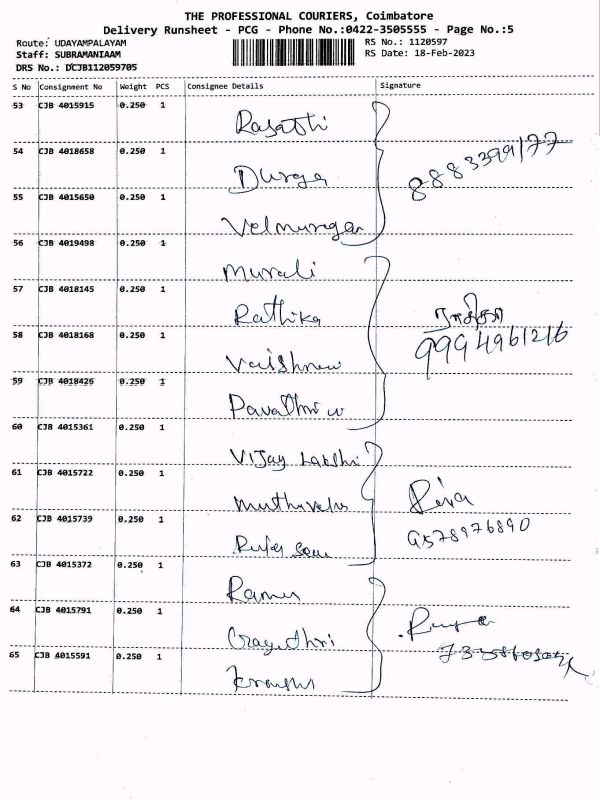 THE PROFESSIONAL COURIERS, Coimbatore
Delivery Runsheet - PCG - Phone No.:0422-3505555 - Page No.:5
Route: UDAYAMPALAYAM RS No.: 1120597
Staff: SUBRAMANIAAM RS Date: 18-Feb-2023
DRS No.: DCJB112059705
S No Consignment No Weight PCS Consignee Details Signature
53 CJB 4015915 0.250 1
Rasathi
54 CJB 4018658 0.250 1
Durga
55 CJB 4015650 0.250 1
Velmurugan
56 CJB 4019498 0.250 1
Murali
57 CJB 4018145 0.250 1
Rathika ராதிகா
58 CJB 4018168 0.250 1 9994961216
59 CJB 4018426 0.250 1
60 CJB 4015361 0.250 1
Vijay
61 CJB 4015722 0.250 1
62 CJB 4015739 0.250 1 9578976890
63 CJB 4015372 0.250 1
Ramu
64 CJB 4015791 0.250 1
65 CJB 4015591 0.250 1